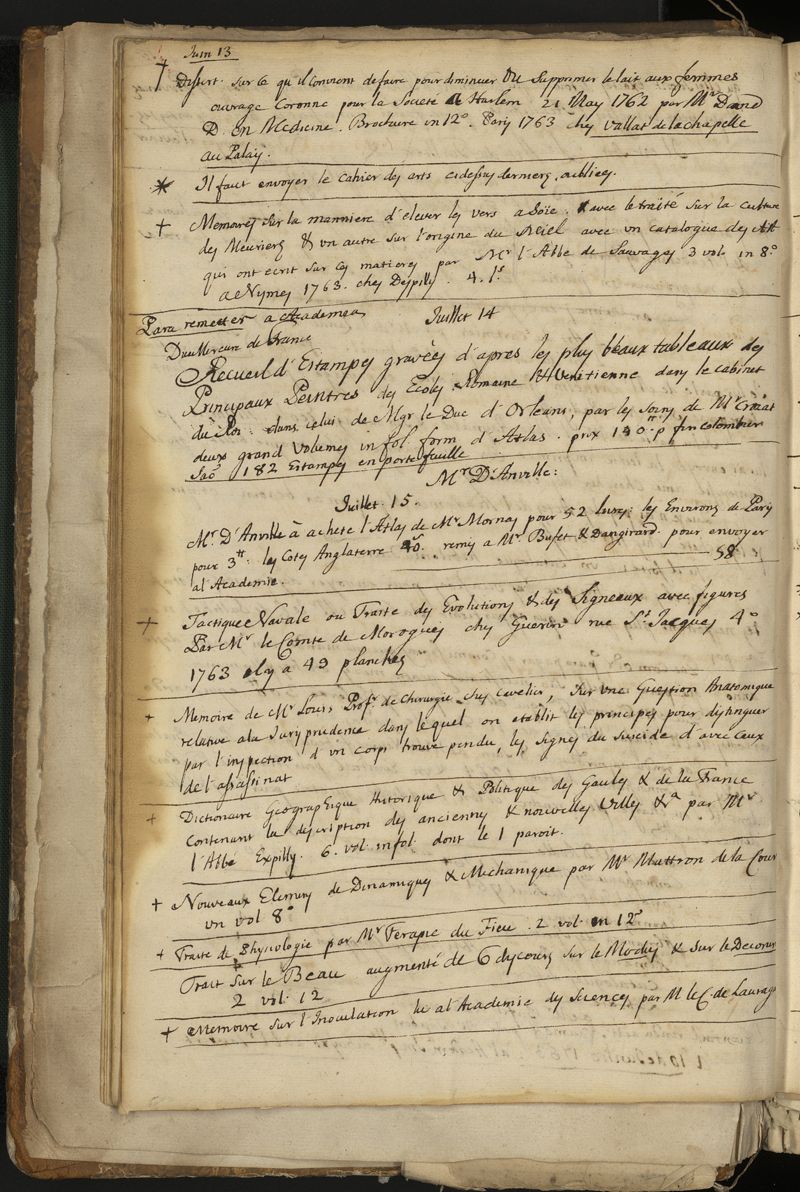 Juin 13
+ Dissert. sur ce qu il convient de faire pour diminuer ou supprimer le lait aux femmes
ouvrage Coronne pour la Societé Harlem 21 May 1762 par Mr David
D. en Medicine. Brochure in 12º. Paris 1763 chez Vallat de la chapelle
au Palais.
* Il faut envoyer le cahier des arts cidessus derniers, oubliees.
+ Memoires sur la manniere d'elever les vers a soie. avec le traité sur la culture
des Meuriers & un autre sur l'origine du Miel avec un catalogue des
qui ont ecrit sur ces matieres par Mr l'Abbe de Sauvages 3 vol. in 8.º
a Nymes 1763. chez Despilly. 4. l.s
Para remetter a Academea Juillet 14
Du Mercure de France
Recueil d'Estampes gravées d'apres les plus beaux tableaux des
Principaux Peintres des Ecoles Romaine & Venitienne dans le cabinet
du Roi. dans celui de Mgr le Duc d'Orleans, par les soins de Mr Crozat
deux grand Volumes in fol. form d'Atlas. prix 140.tt p fin colombier
Sao 182 Estampes en porte feuille
Mr D'Anville:
Juillet 15.
Mr. D'Anville à acheté l'Atlas de Mr Mornas pour 52 livres: les Environs de Paris
pour 3tt. les Cotes Angleterre remis a Mr. Bufet & Dangirard. pour envoyer
al'Academie. 58
+ Tactique Navale ou Traite des Evolutions & des Signeaux avec figures
Par Mr le Comte de Morogues chez Guerin rue St. Jacques 4º
1763 il y a 49 planches
+ Memoire de Mr Louis Prof. de Chirurgie chez Cavelier, sur une Question Anatomique
relative ala Jurysprudence dans lequel on etablit les principes pour distinguer
par l'inspection d'un corps trouvé pendu, les signes du suicide d'avec ceux
de l'assassinat
+ Dictionaire Geographique Historique & Politique des Gaules & de la France
contenant la description des anciennes & nouvelles Villes &a par Mr
l'Abbé Expilly. 6. vol. in fol. dont le 1 paroit.
+ Nouveaux Elemens de Dinamiques & Mechanique par Mr Mattron de la Cour
un vol 8º
+ Traite de Physiologie par Mr Ferapie du Fieu. 2 vol in 12º
+ Trait sur le Beau augmenté de 6 discours sur le Modes & sur le Decorum
2 vol. 12
+ Memoire sur l'Inoculation lu al'Academie des Sciences par M le C. de Lauragais